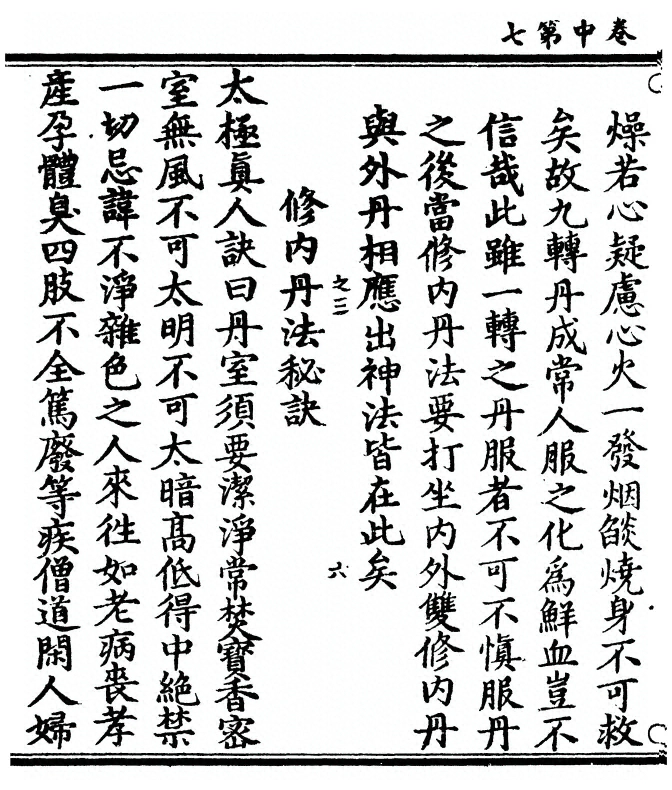 卷中第七
燥若心疑慮心火一發烟燄燒身不可救
矣故九轉丹成常人服之化爲鮮血豈不
信哉此雖一轉之丹服者不可不慎服丹
之後當修内丹法要打坐内外雙修内丹
與外丹相應出神法皆在此矣
之三
六
修内丹法秘訣
太極真人訣曰丹室須要潔淨常焚寶香密
室無風不可太明不可太暗髙低得中絶禁
一切忌諱不淨雜色之人來徃如老病喪孝
產孕體臭四肢不全篤廢等疾僧道閑人婦